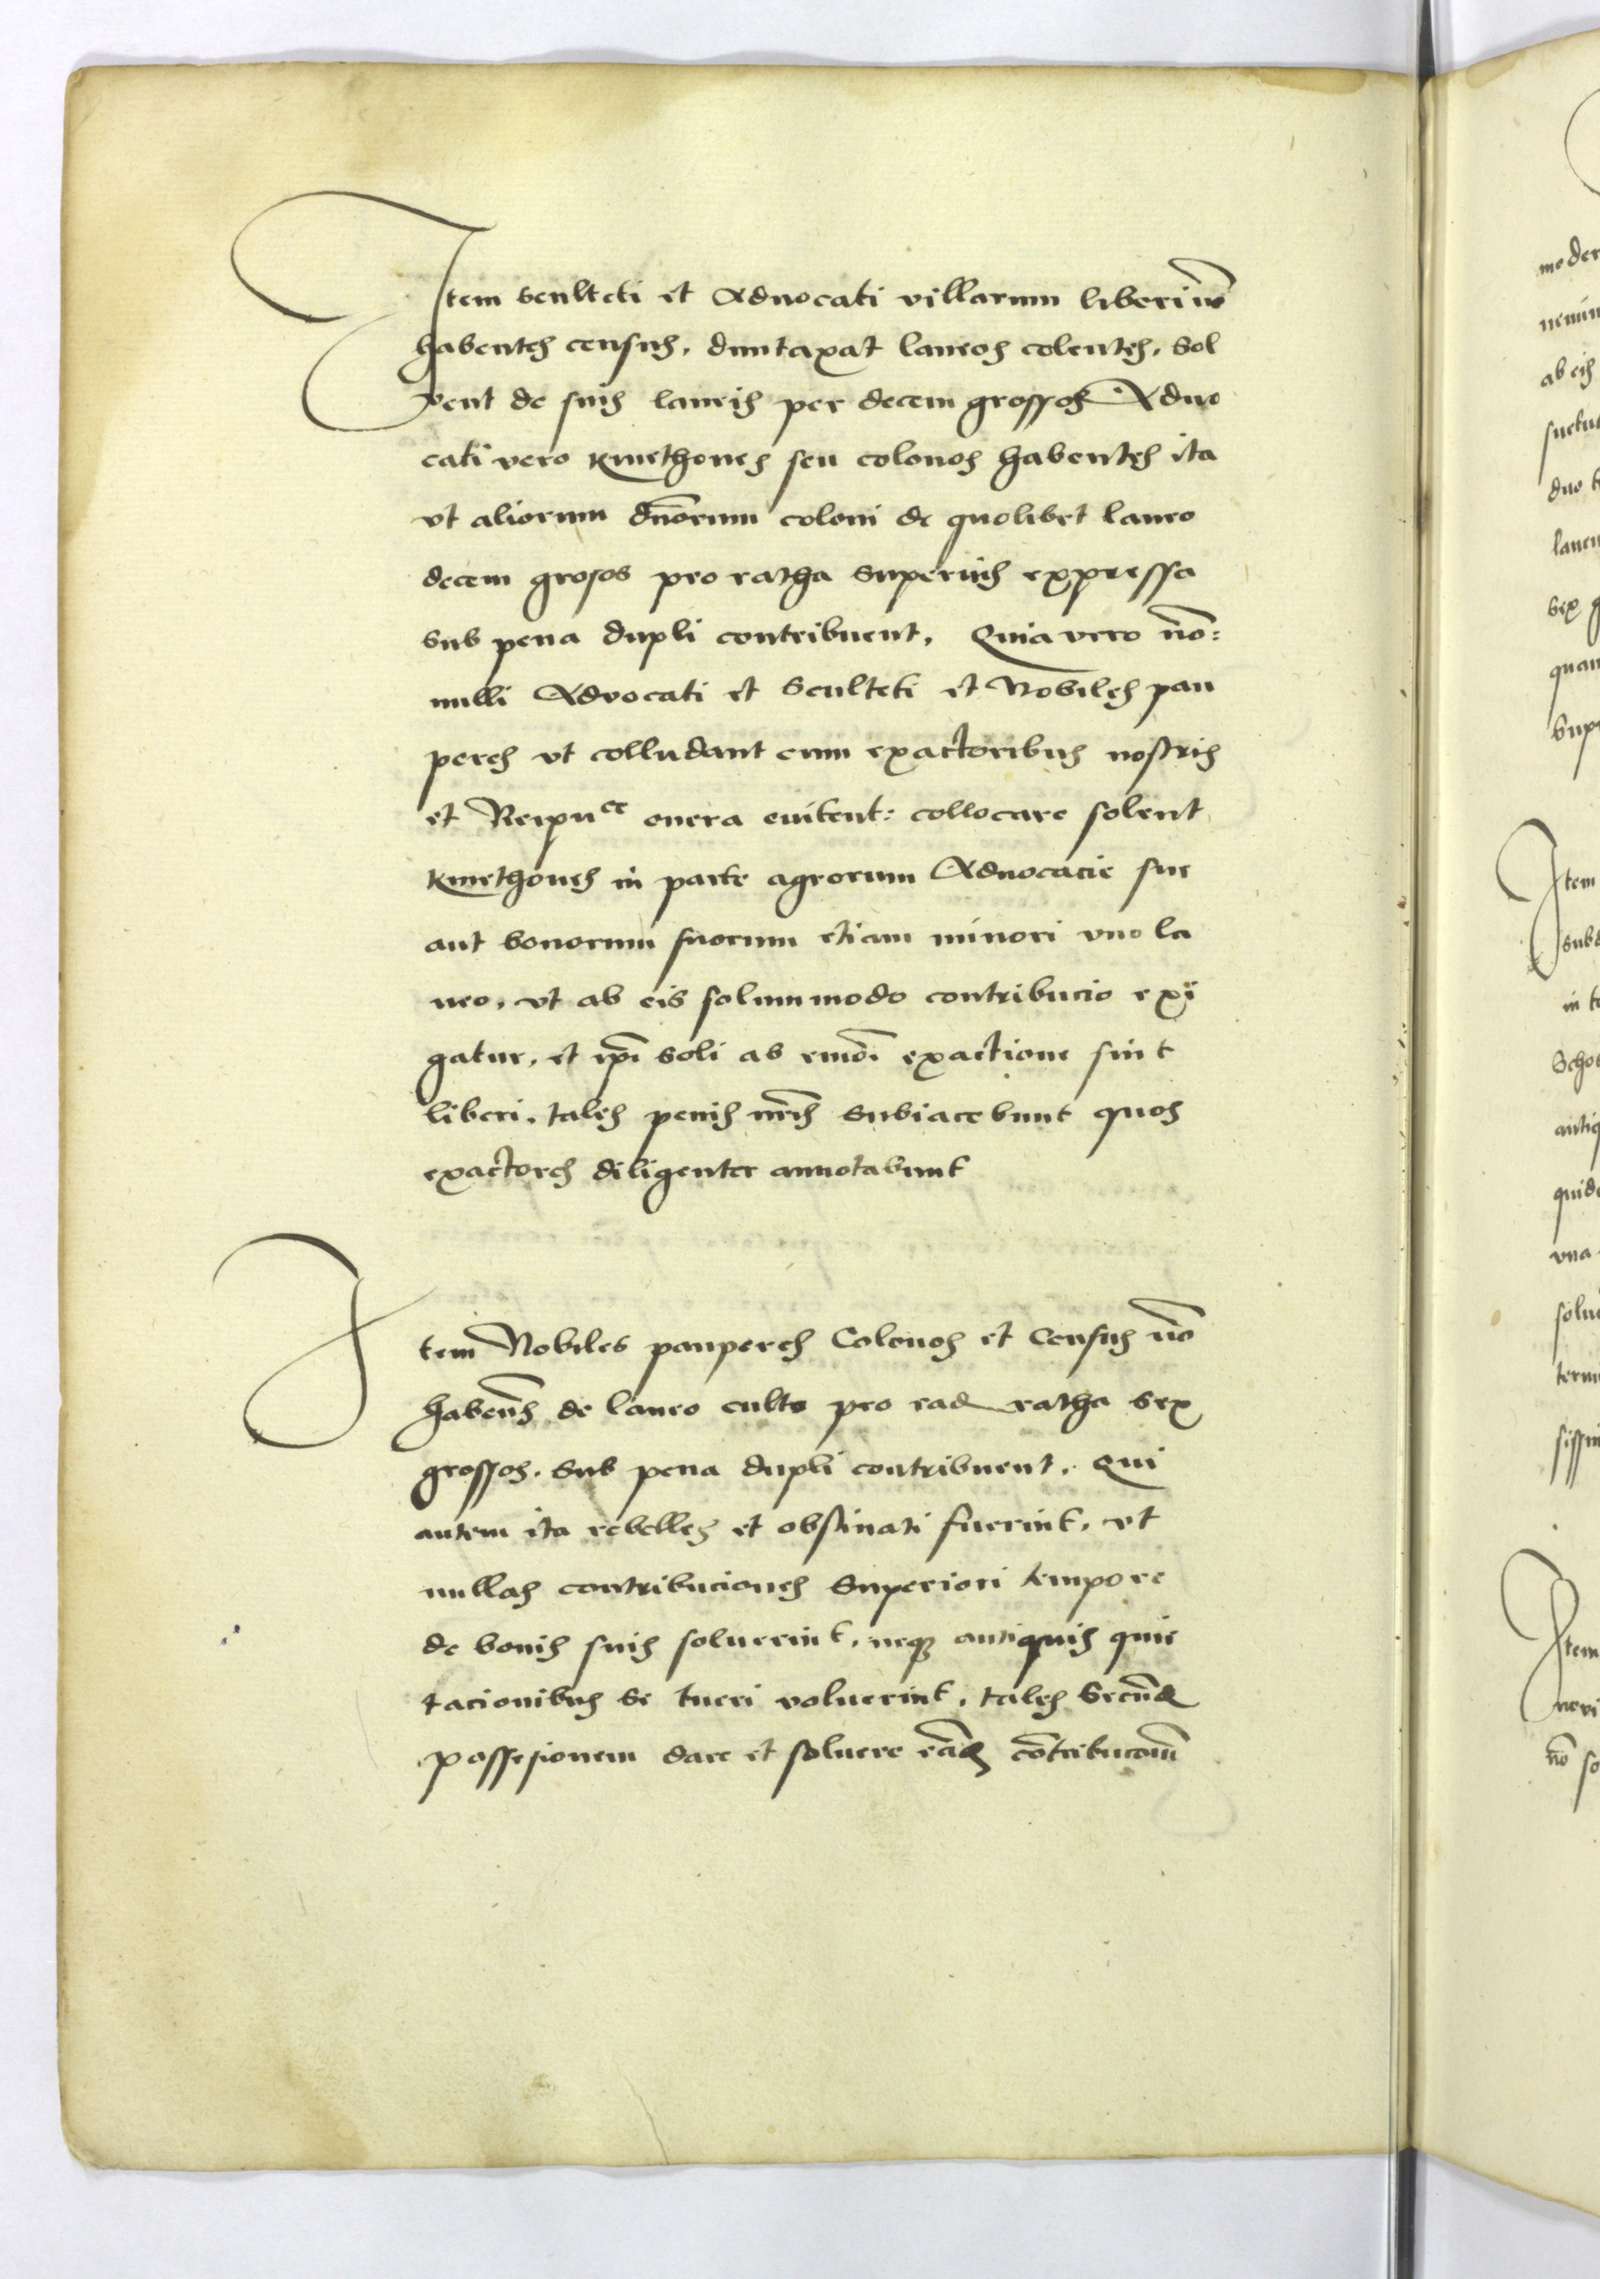 Item Sculteti et Aduocati villarum liberi nō
habentes census, duntaxat laneos colentes, Sol
vent de suis laneis per decem grossos Aduo
cati vero kmethones seu colonos habentes ita
vt aliorum dn̄orum coloni de quolibet laneo
decem grosos pro ratha superius expressa
sub pena dupli contribuent, Quia vero nō:
nulli Advocati et Sculteti et Nobiles pau
peres vt colludant cum exactoribus nostris
et Reipuce onera euitent: collocare solent
kmethones in parte agrorum Aduocacie sue
aut bonorum suorum etiam minori vno la
neo, vt ab eis solummodo contribucio exi
gatur, et ip̄i soli ab em̄oi exactione sint
liberi, tales penis nr̄is subiacebunt quos
exactores diligenter annotabunt
Item Nobiles pauperes Colonos et Census nō
haben̄s de laneo culto pro ead ratha sex
grossos, Sub pena dupli contribuent, Qui
autem ita rebelles et obstinati fuerint, vt
nullas contribuciones Superiori tempore
de bonis suis soluerint, neq antiquis quie
tacionibus se tueri voluerint, tales Secūd
possesionem dare et soluere eād cōtribucōm
Item
Item
nō so